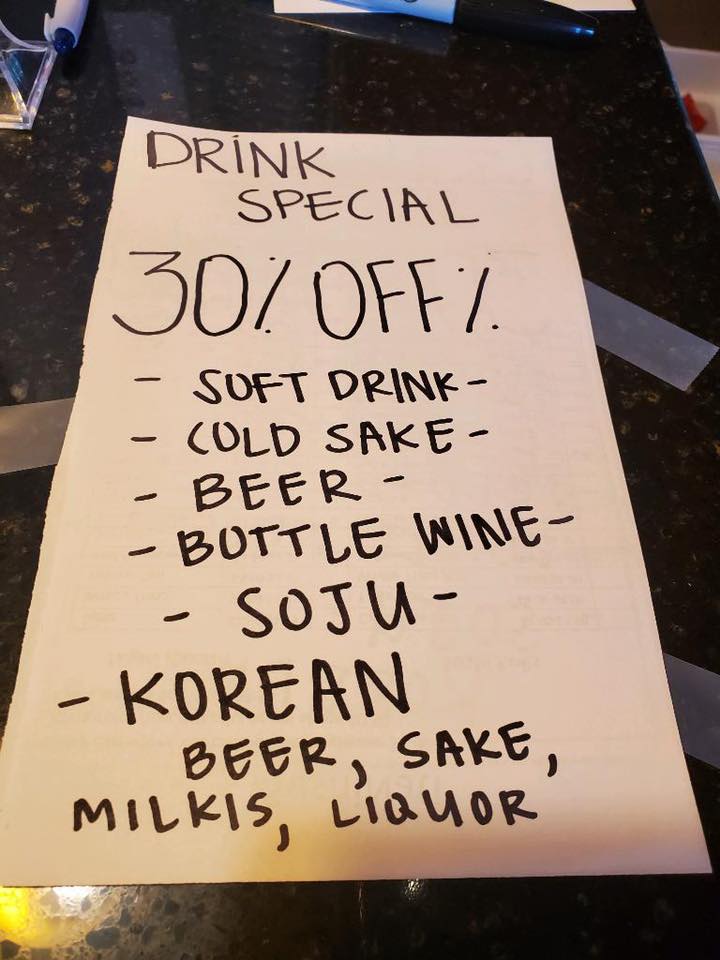 DRINK
SPECIAL
30% OFF %
- SOFT DRINK -
- COLD SAKE -
- BEER -
- BOTTLE WINE -
- SOJU -
- KOREAN
BEER, SAKE,
MILKIS, LIQUOR